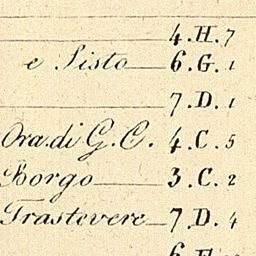 4.H.7
e Sisto 6.G.1
7.D.1
Ora.di G.C. 4.C.5
Borgo 3.C.2
Trastevere 7.D.4